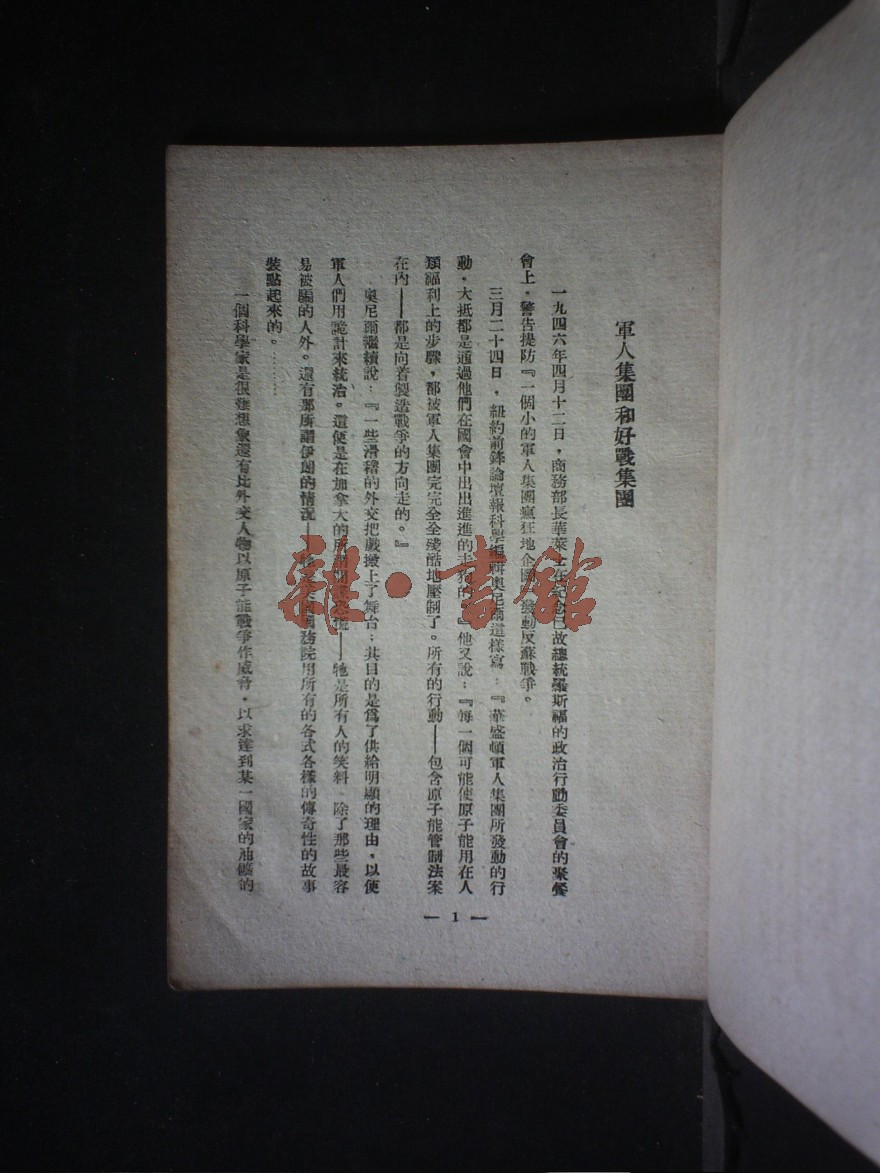 軍人集團和好戰集團
一九四六年四月十二日，商務部長華萊士在紀念已故總統羅斯福的政治行動委員會的聚餐
會上，警告提防『一個小的軍人集團瘋狂地企圖』發動反蘇戰爭。
三月二十四日，紐約前鋒論壇報科學編輯奧尼爾這樣寫：『華盛頓軍人集團所發動的行
動，大抵都是通過他們在國會中出出進進的走狗的。』他又說：『每一個可能使原子能用在人
類福利上的步驟，都被軍人集團完完全全殘酷地壓制了。所有的行動——包含原子能管制法案
在內——都是向着製造戰爭的方向走的。』
奧尼爾繼續說：『一些滑稽的外交把戲搬上了舞台；其目的是爲了供給明顯的理由，以便
軍人們用詭計來統治。這便是在加拿大的所謂間諜恐慌——牠是所有人的笑料，除了那些最容
易被騙的人外。還有那所謂伊朗的情況——國務院用所有的各式各樣的傳奇性的故事
裝點起來的。………
一個科學家是很難想象還有比外交人物以原子能戰爭作威脅，以求達到某一國家的油鑛的
— 1 —
雜·書館